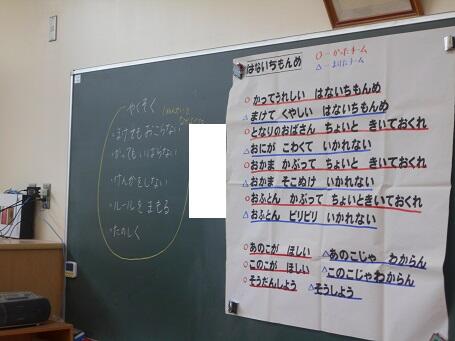 やくそく
・まけてもおこらない
・かってもいばらない
・けんかをしない
・ルールをまもる
・たのしく
はないちもんめ
○-かったチーム
△-まけたチーム
○かってうれしい はないちもんめ
△まけて くやしい はないちもんめ
○となりのおばさん ちょいと きいておくれ
△おにが こわくて いかれない
○おかま かぶって ちょいと きいておくれ
△おかま そこぬけ いかれない
○おふとん かぶって ちょいときいておくれ
△おふとん ビリビリ いかれない
○あのこが ほしい △あのこじゃ わからん
○このこが ほしい △このこじゃ わからん
○そうだんしよう △そうしよう